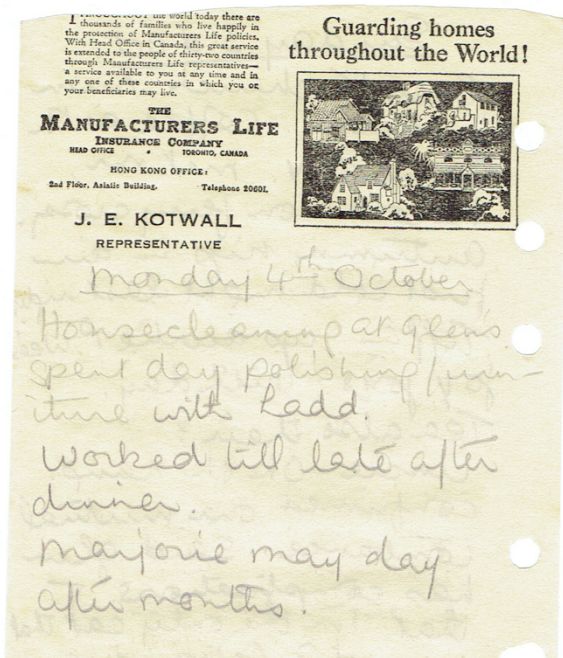 THROUGHOUT the world today there are
thousands of families who live happily in
the protection of Manufacturers Life policies.
With Head Office in Canada, this great service
is extended to the people of thirty-two countries
through Manufacturers Life representatives—
a service available to you at any time and in
any one of these countries in which you or
your beneficiaries may live.
THE
MANUFACTURERS LIFE
INSURANCE COMPANY
HEAD OFFICE • TORONTO, CANADA
HONG KONG OFFICE:
2nd Floor, Asiatic Building. Telephone 20601.
J. E. KOTWALL
REPRESENTATIVE
Guarding homes
throughout the World!
Monday 4th October
Housecleaning at Glen's
spent day polishing furn-
iture with Ladd.
Worked till late after
dinner.
Marjorie may day
after months.